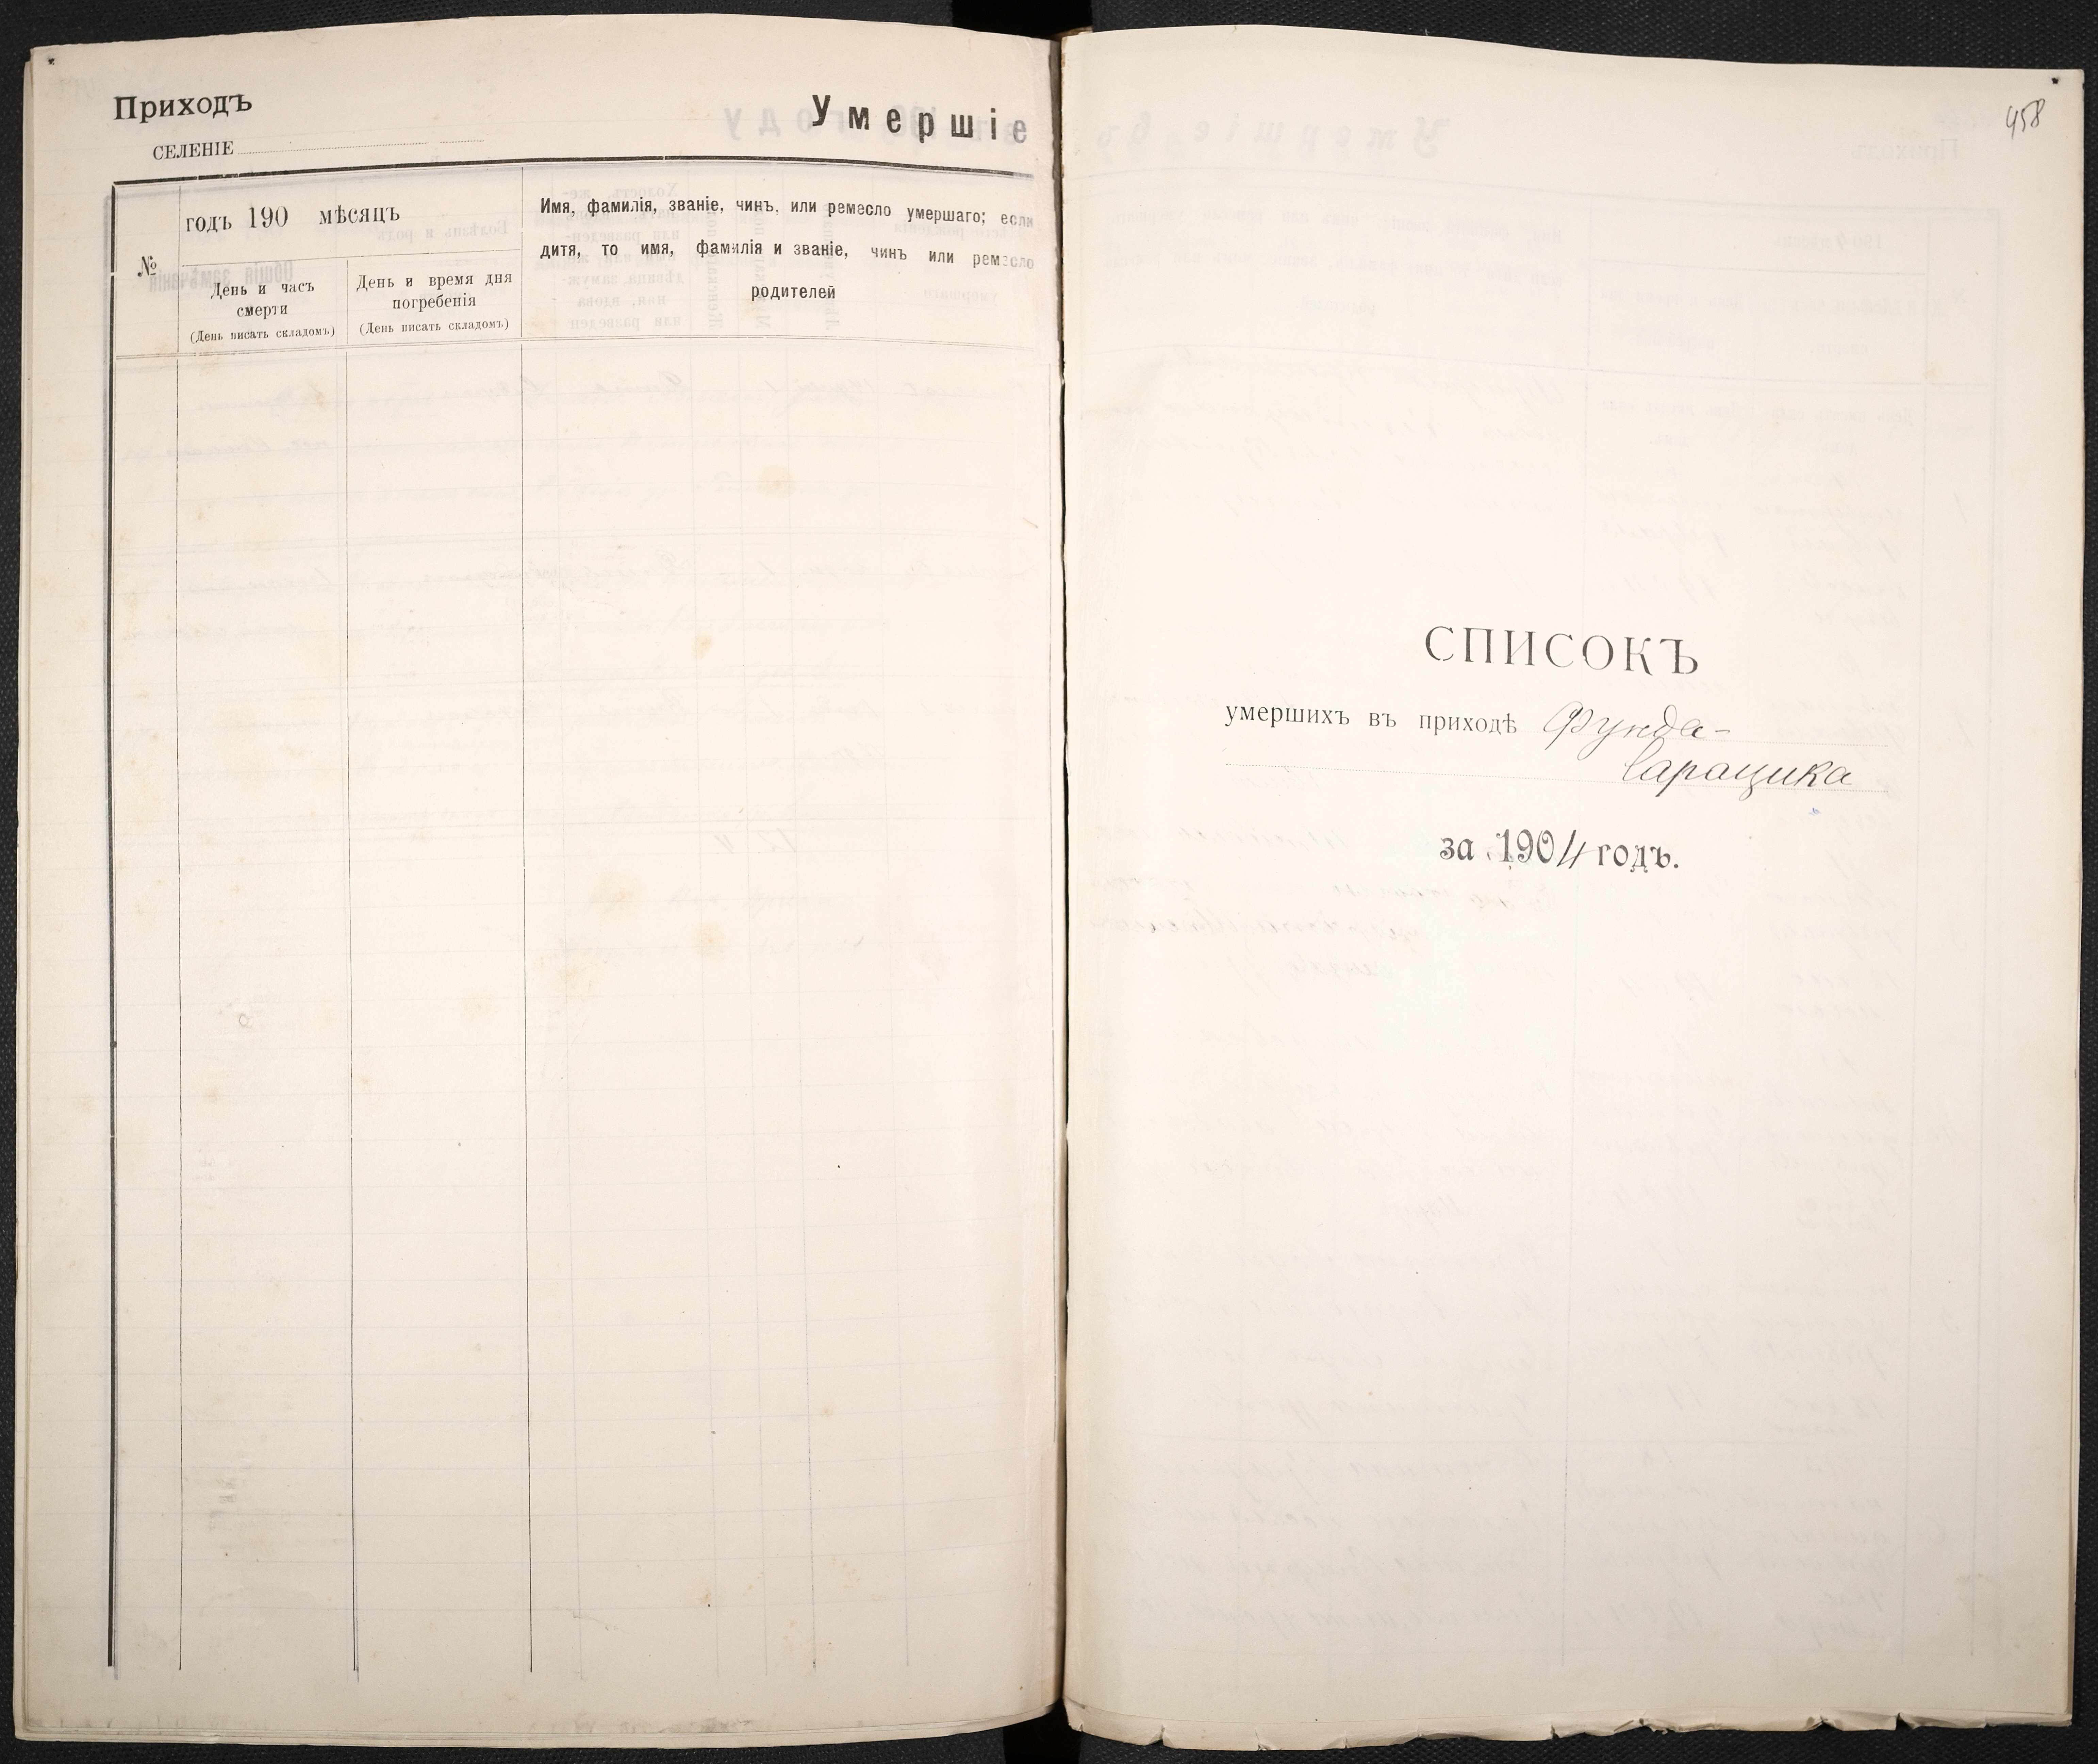 Приходъ
СЕЛЕНІЕ
Умершіе
№
годъ 190 мѣсяцъ
День и часъ
смерти
(День писать складомъ)
День и время дня
погребенія
(День писать складомъ)
Имя, фамилія, званіе, чинъ, или ремесло умершаго; если
дитя, то имя, фамилія и званіе, чинъ или ремесло
родителей
458
СПИСОКЪ
умершихъ въ приходѣ Фунда-
Сарацика
за 1904 годъ.